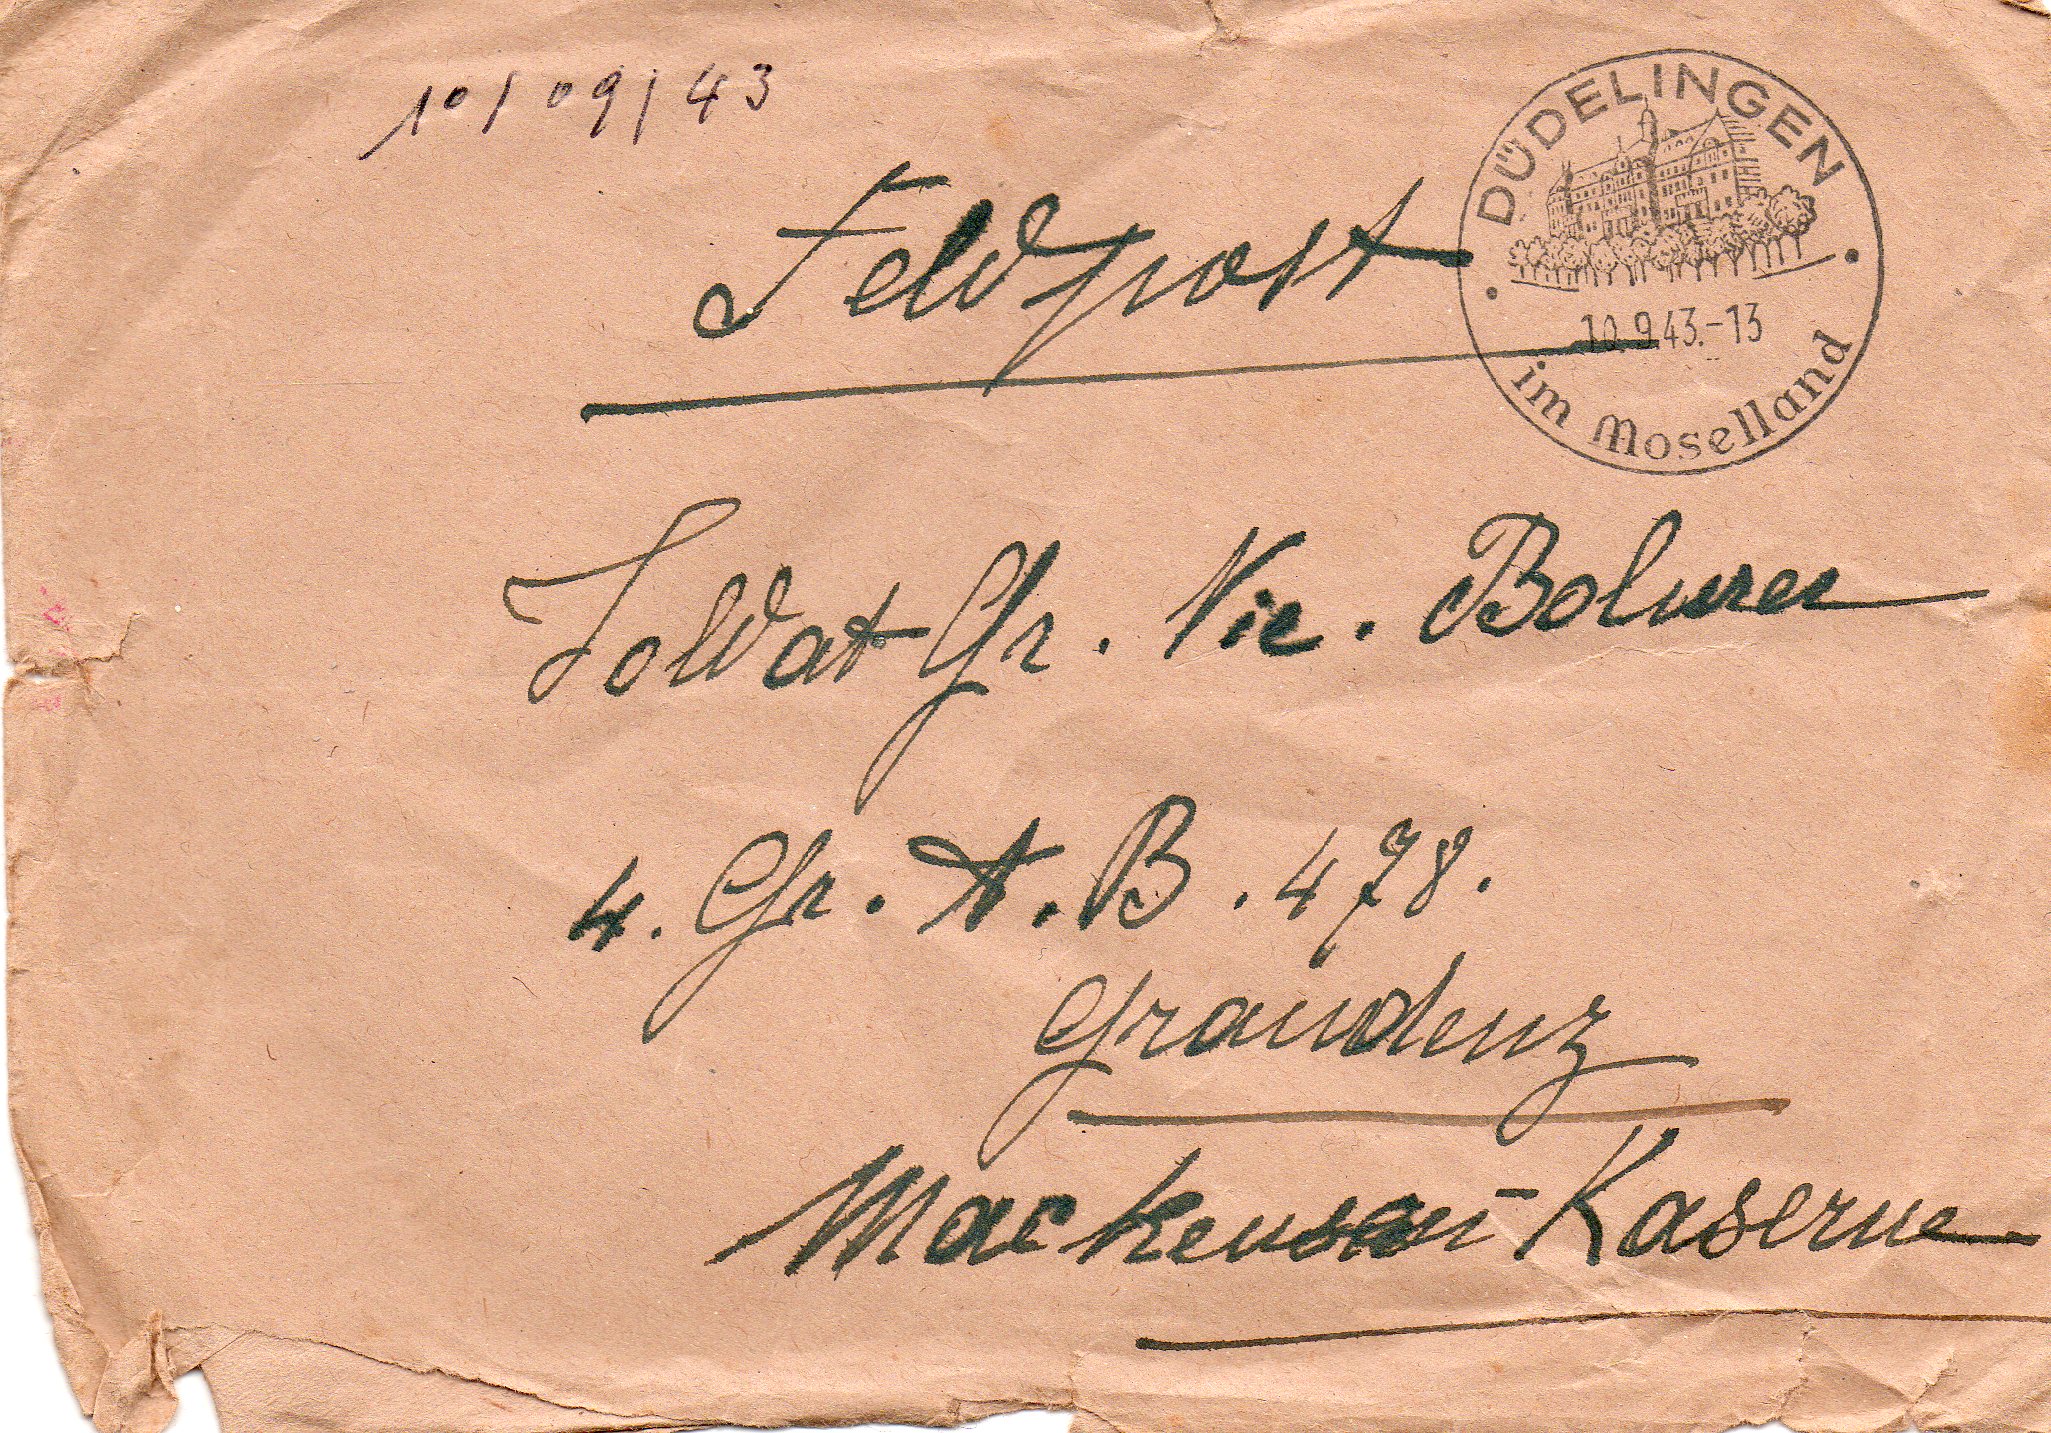 10/09/43
DÜDELINGEN
10.9.43.-13
im Moselland
Feldpost
Soldat Gr. Nic.
4. Gr. A. B. 478.
Graudenz
Mackensen-Kaserne